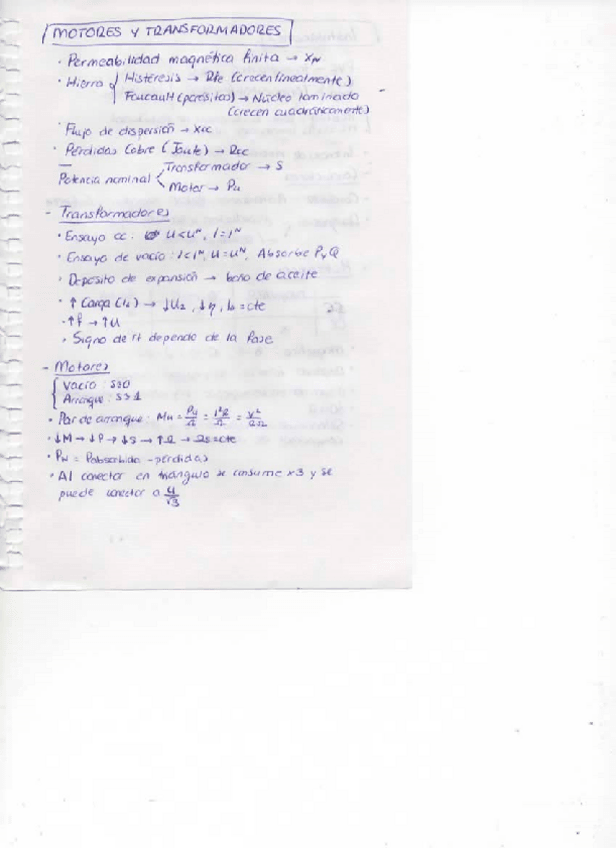 MOTORES Y TRANSFORMADORES
· Permeabilidad magnética finita → Xμ
· Hierro { Histéresis → Rfe (crecen linealmente)
Foucault (parásitas) → Núcleo laminado
(crecen cuadráticamente)
· Flujo de dispersión → Xcc
· Pérdidas Cobre (Joule) → Rcc
Potencia nominal < Transformador → S
Motor → Pu
- Transformadores
· Ensayo cc: U<Uᴺ, I=Iᴺ
· Ensayo de vacío: I<Iᴺ, U=Uᴺ, Absorbe P y Q
· Depósito de expansión → baño de aceite
· ↑ Carga (I₂) → ↓U₂, ↓η, I₀=cte
· ↑f → ↑U
· Signo de rt depende de la fase
- Motores
{ Vacío: S≈0
Arranque: S=1
· Par de arranque: Mu = Pu/Ω = I²R/Ω = V²/RΩ
· ↓M → ↓P → ↓S → ↑Ω → Ωs=cte
· Pu = Pabsorbida - pérdidas
· Al conectar en triángulo se consume x3 y se
puede conectar a U/√3